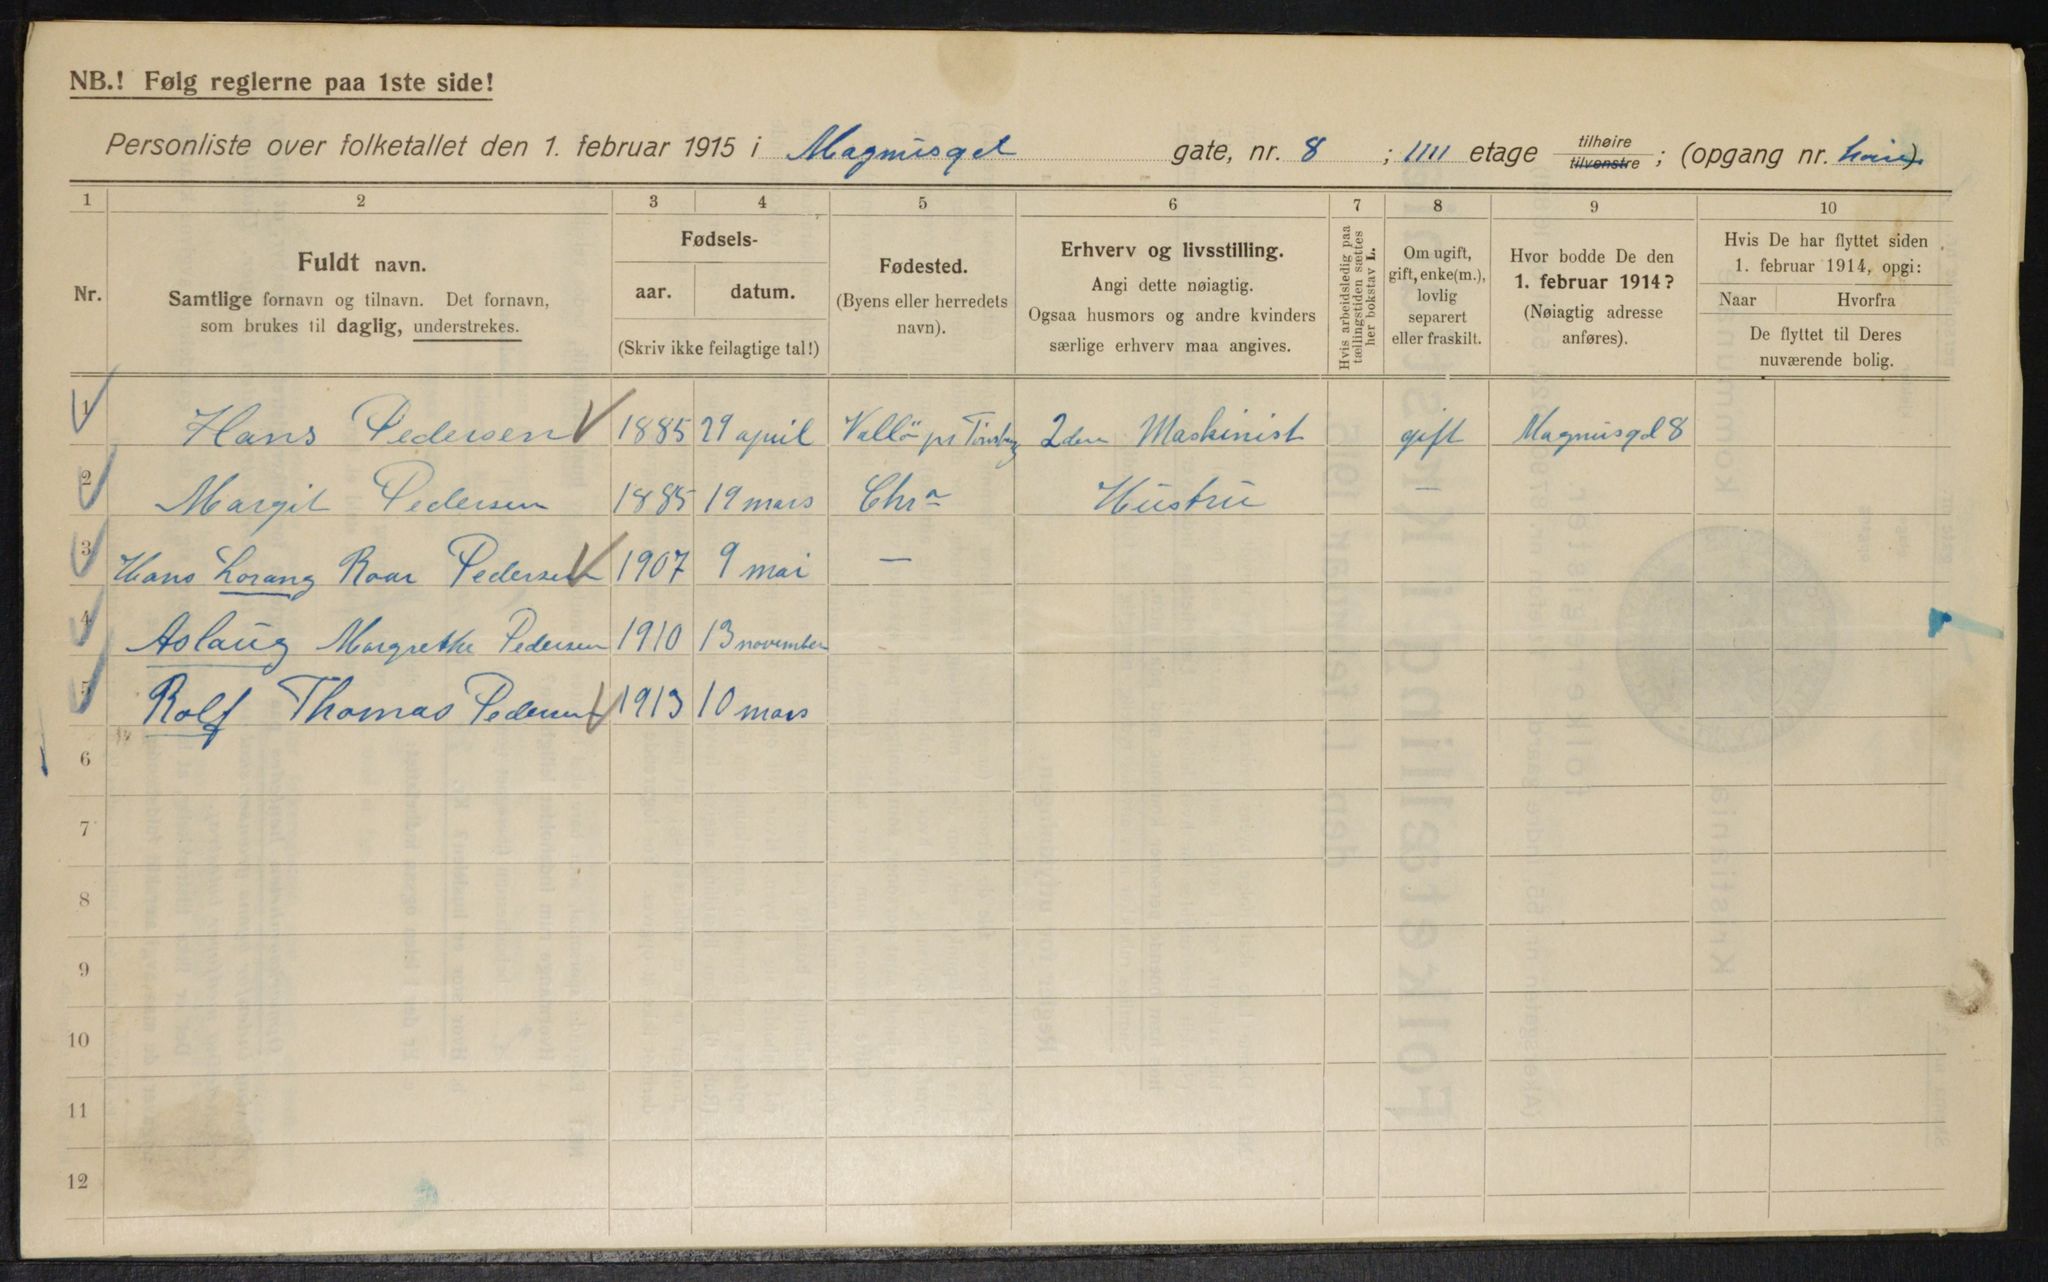 NB.! Følg reglerne paa 1ste side!
Personliste over folketallet den 1. februar 1915 i Magnusgt gate, nr. 8 ; IIII etage tilhøire tilvenstre ; (opgang nr. )
1 2 3 4 5 6 7 8 9 10
Nr.
Fuldt navn.
Samtlige fornavn og tilnavn. Det fornavn,
som brukes til daglig, understrekes.
Fødsels-
aar. datum.
(Skriv ikke feilagtige tal!)
Fødested.
(Byens eller herredets
navn).
Erhverv og livsstilling.
Angi dette nøiagtig.
Ogsaa husmors og andre kvinders
særlige erhverv maa angives.
Hvis arbeidsledig paa
tællingstiden sættes
her bokstav L.
Om ugift,
gift, enke(m.),
lovlig
separert
eller fraskilt.
Hvor bodde De den
1. februar 1914?
(Nøiagtig adresse
anføres).
Hvis De har flyttet siden
1. februar 1914, opgi:
Naar Hvorfra
De flyttet til Deres
nuværende bolig.
1 Hans Pedersen 1885 29 april Vallö pr Tönsberg 2den Maskinist gift Magnusgt 8
2 Margit Pedersen 1885 19 mars Chra Hustru —
3 Hans Lorang Roar Pedersen 1907 9 mai —
4 Aslaug Margrethe Pedersen 1910 13 november
5 Rolf Thomas Pedersen 1913 10 mars
6
7
8
9
10
11
12